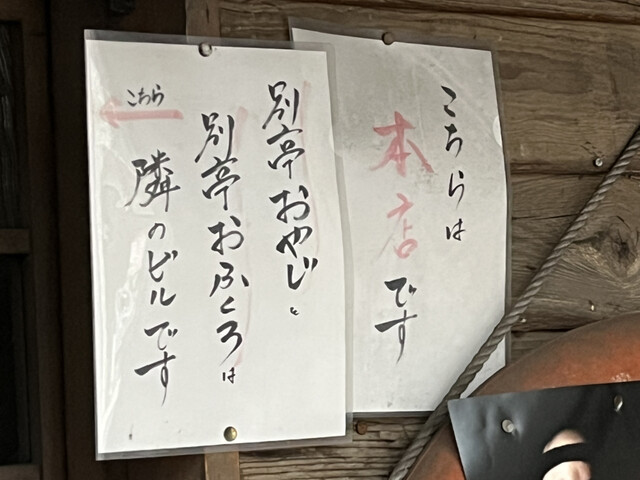 こちらは
本店
です
別亭おやじと
別亭おふくろは
こちら
隣のビルです